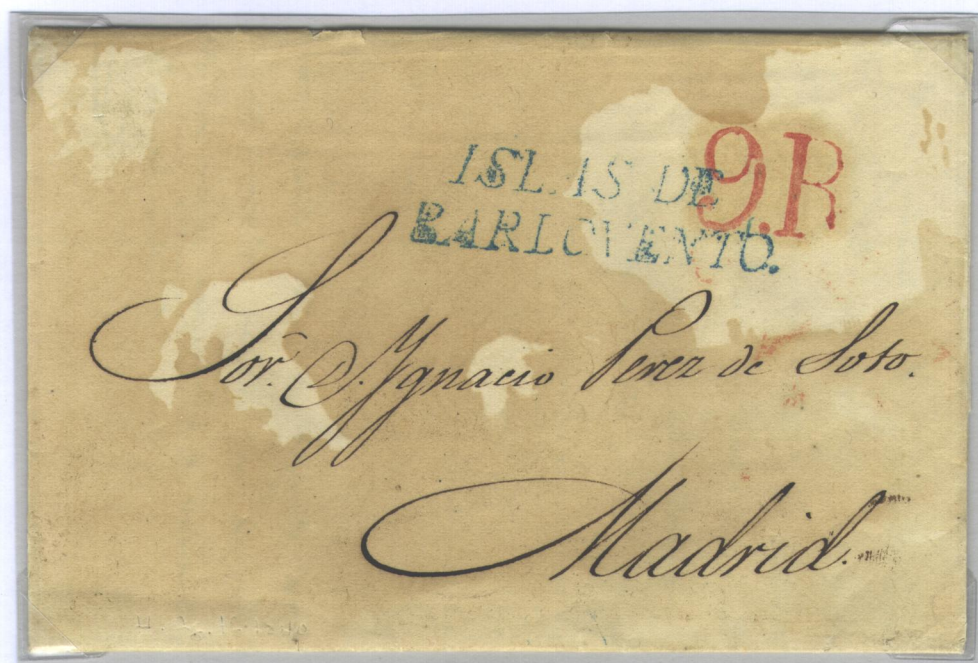 ISLAS DE
BARLOVENTO.
9.R
Sor. D. Ygnacio Perez de Soto.
Madrid.